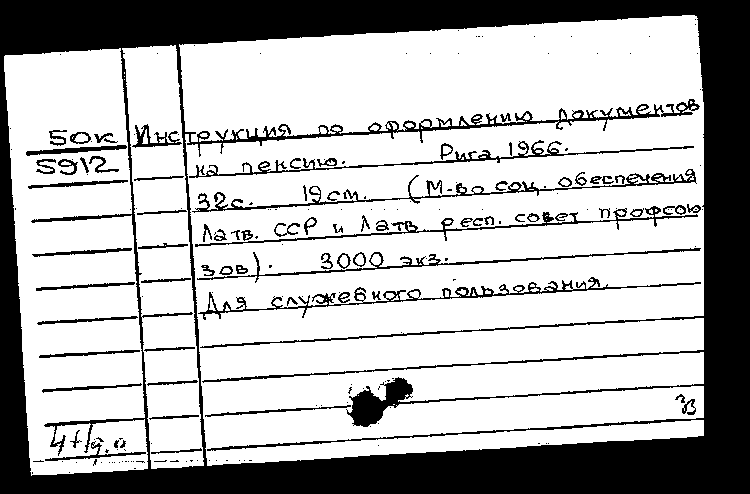 50к Инструкция по оформлению документов
5912 на пенсию. Рига, 1966.
32с. 19см. (М-во соц. обеспечения
Латв. ССР и Латв. респ. совет профсою
зов). 3000 экз.
Для служебного пользования.